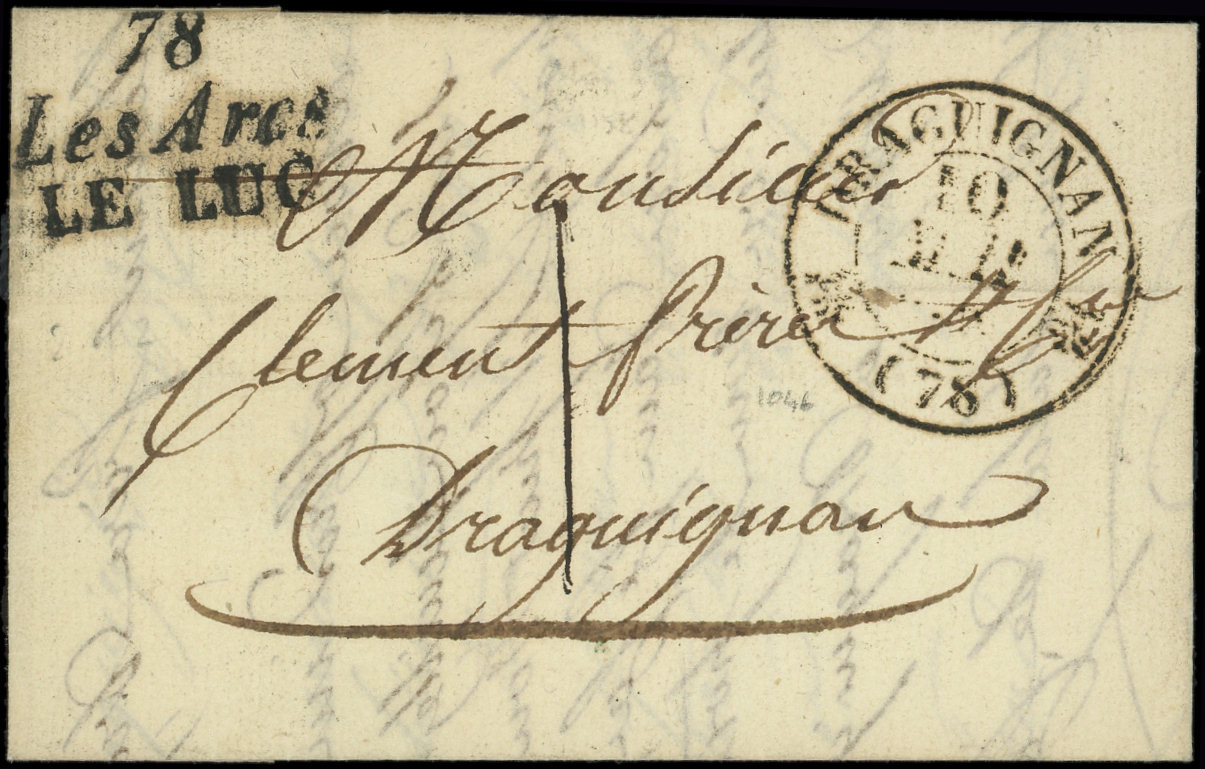 78
Les Arcs
LE LUC
DRAGUIGNAN
10
(78)
Monsieur
Clement frères &
1046
Draguignan